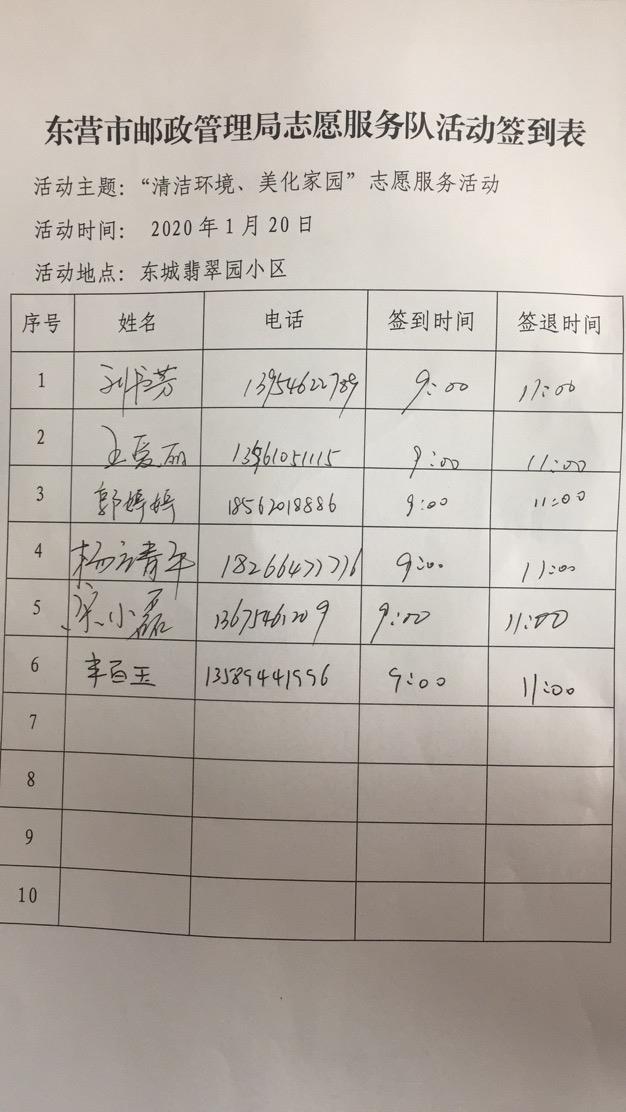 东营市邮政管理局志愿服务队活动签到表
活动主题：“清洁环境、美化家园”志愿服务活动
活动时间： 2020年1月20日
活动地点：东城翡翠园小区
序号 姓名 电话 签到时间 签退时间
1 刘书芳 13954622789 9:00 11:00
2 王爱丽 13561051115 9:00 11:00
3 郭婷婷 18562018886 9:00 11:00
4 杨 青年 18266477776 9:00 11:00
5 宋小磊 13675461209 9:00 11:00
6 百玉 13589441996 9:00 11:00
7
8
9
10